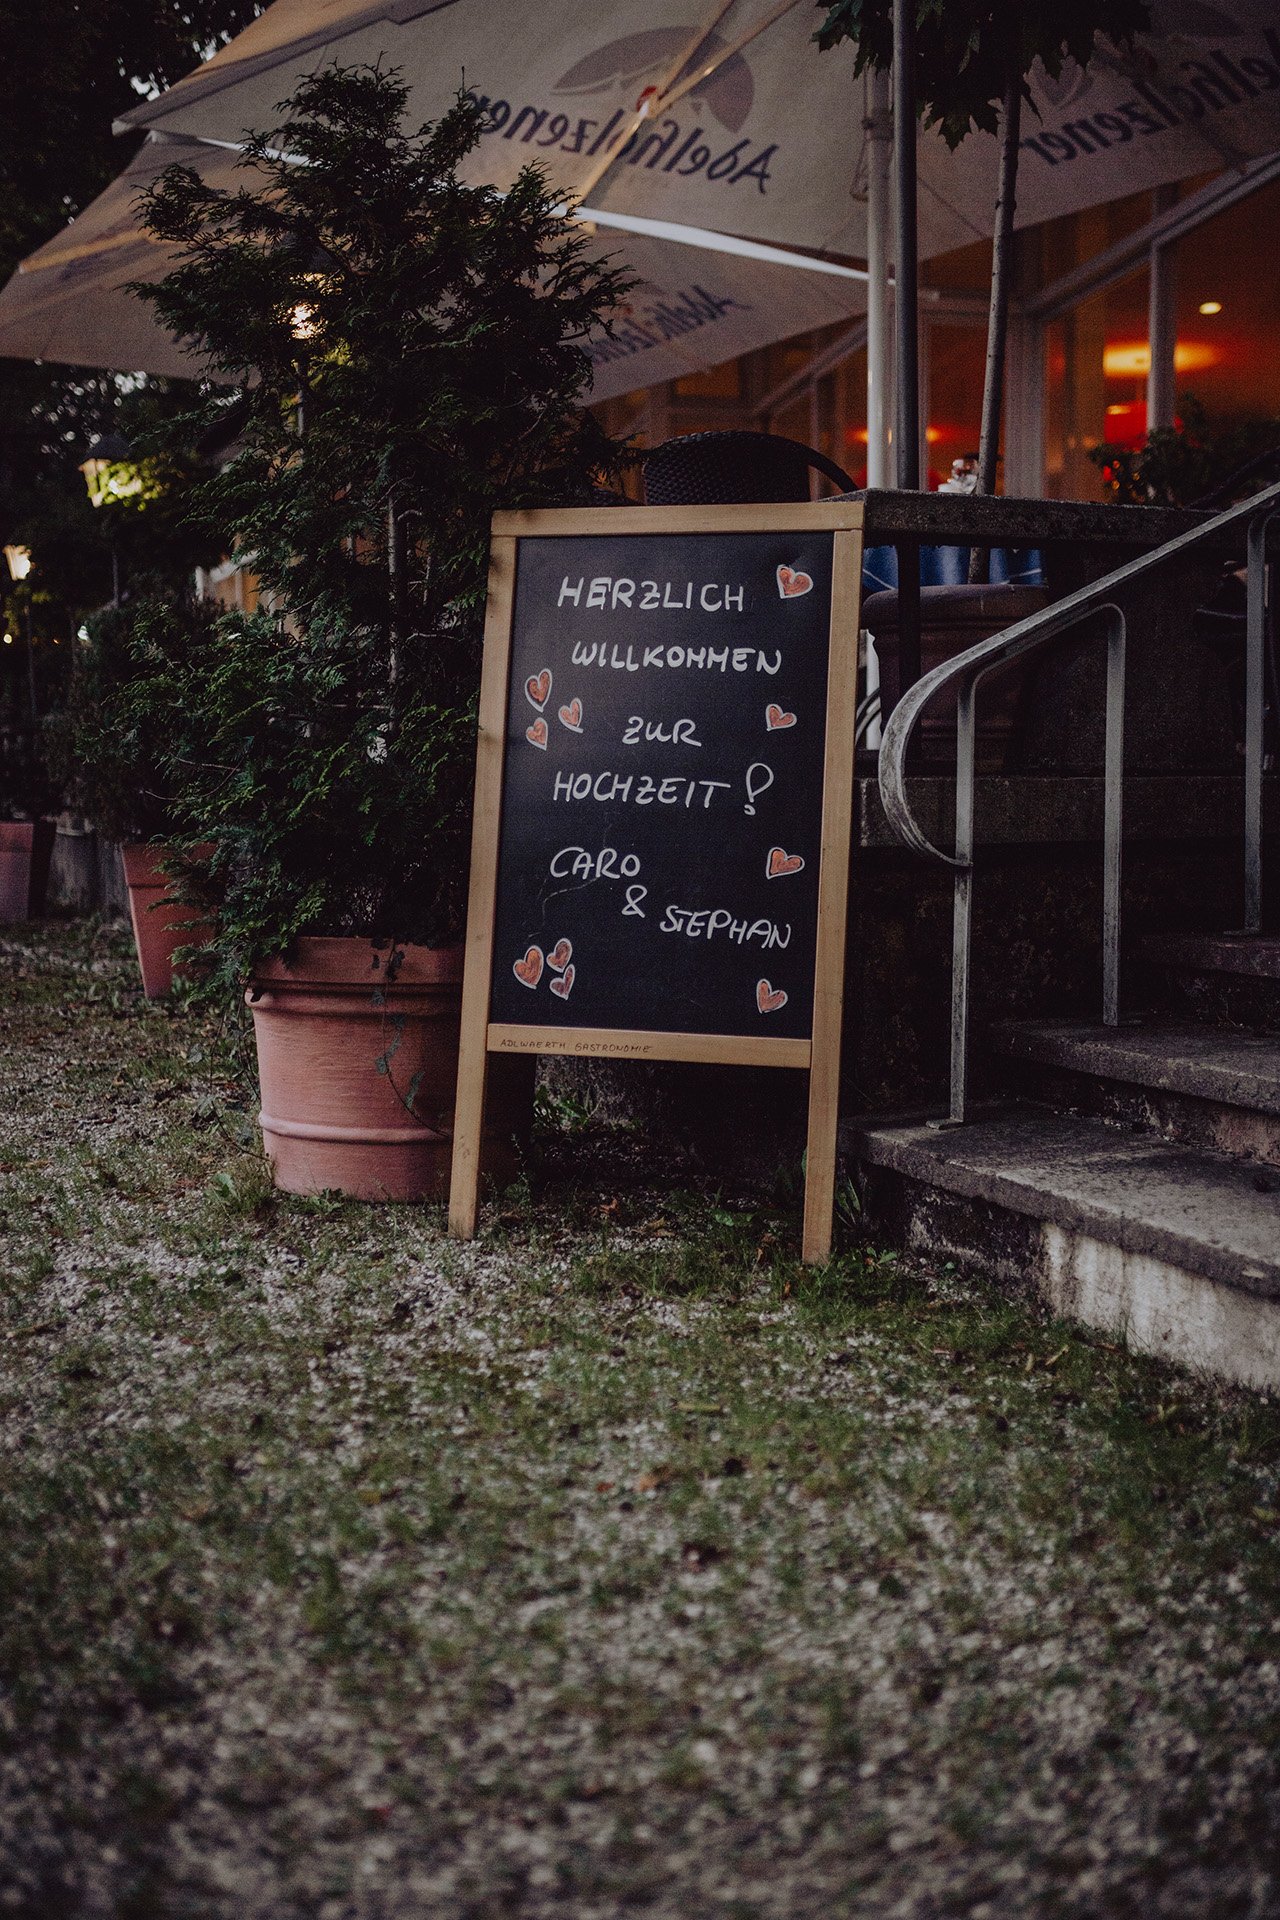 Adelholzener
Adelholzener
Adelholzener
HERZLICH
WILLKOMMEN
ZUR
HOCHZEIT!
CARO
&
STEPHAN
ADLWAERTH GASTRONOMIE